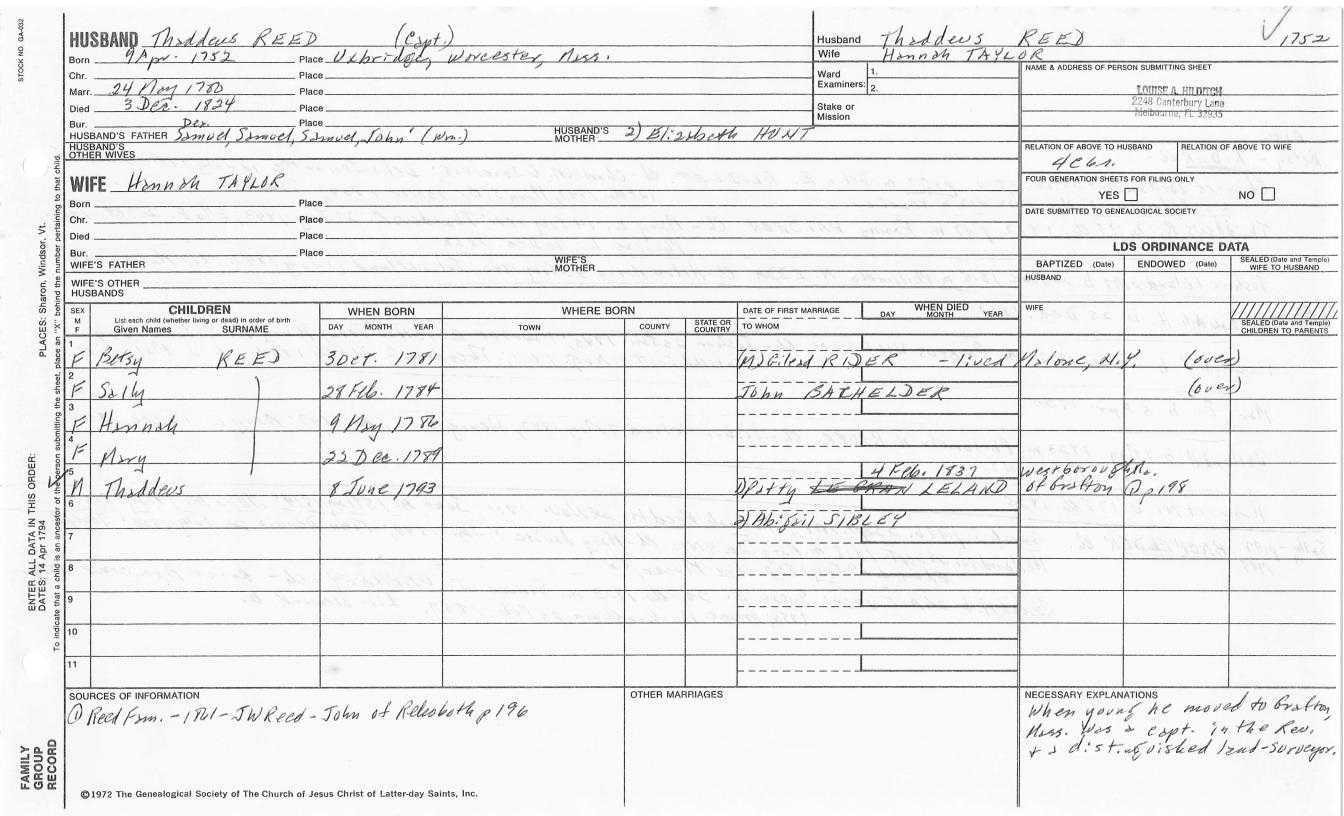 STOCK NO. GA-032
HUSBAND Thaddeus REED (Capt.)
Born 9 Apr. 1752 Place Uxbridge, Worcester, Mass.
Chr. Place
Marr. 24 May 1780 Place
Died 3 Dec. 1824 Place
Bur. Place
HUSBAND'S FATHER Samuel, Samuel, Samuel, John (Wm.) HUSBAND'S MOTHER 2) Elizabeth HUNT
HUSBAND'S OTHER WIVES
Husband Thaddeus REED 1752
Wife Hannah TAYLOR
Ward Examiners: 1.
2.
Stake or Mission
NAME & ADDRESS OF PERSON SUBMITTING SHEET
LOUISE A. HILDITCH
2248 Canterbury Lane
Melbourne, FL 32935
RELATION OF ABOVE TO HUSBAND RELATION OF ABOVE TO WIFE
FOUR GENERATION SHEETS FOR FILING ONLY
YES NO
DATE SUBMITTED TO GENEALOGICAL SOCIETY
WIFE Hannah TAYLOR
Born Place
Chr. Place
Died Place
Bur. Place
WIFE'S FATHER WIFE'S MOTHER
WIFE'S OTHER HUSBANDS
LDS ORDINANCE DATA
BAPTIZED (Date) ENDOWED (Date) SEALED (Date and Temple) WIFE TO HUSBAND
HUSBAND
WIFE
SEALED (Date and Temple) CHILDREN TO PARENTS
SEX M F
CHILDREN
List each child (whether living or dead) in order of birth
Given Names SURNAME
WHEN BORN
DAY MONTH YEAR
WHERE BORN
TOWN COUNTY STATE OR COUNTRY
DATE OF FIRST MARRIAGE
TO WHOM
WHEN DIED
DAY MONTH YEAR
1 F Betsy REED 3 Oct. 1781 (M) Gilead RIDER - lived Malone, N.Y. (over)
2 F Sally 28 Feb. 1784 John BACHELDER (over)
3 F Hannah 9 May 1786
4 F Mary 22 Dec. 1789
5 M Thaddeus 8 June 1793 4 Feb. 1837 Westborough Ma.
1) Patty LELAND of Grafton ① p 198
6 2) Abigail SIBLEY
7
8
9
10
11
SOURCES OF INFORMATION
① Reed Fam. - 1861 - JW Reed - John of Rehoboth p 196
OTHER MARRIAGES
NECESSARY EXPLANATIONS
When young he moved to Grafton,
Mass. Was a capt. in the Rev.
+ a distinguished land-surveyor.
©1972 The Genealogical Society of The Church of Jesus Christ of Latter-day Saints, Inc.
FAMILY GROUP RECORD
ENTER ALL DATA IN THIS ORDER:
DATES: 14 Apr 1794 PLACES: Sharon, Windsor, Vt.
To indicate that a child is an ancestor of the person submitting the sheet, place an "X" behind the number pertaining to that child.